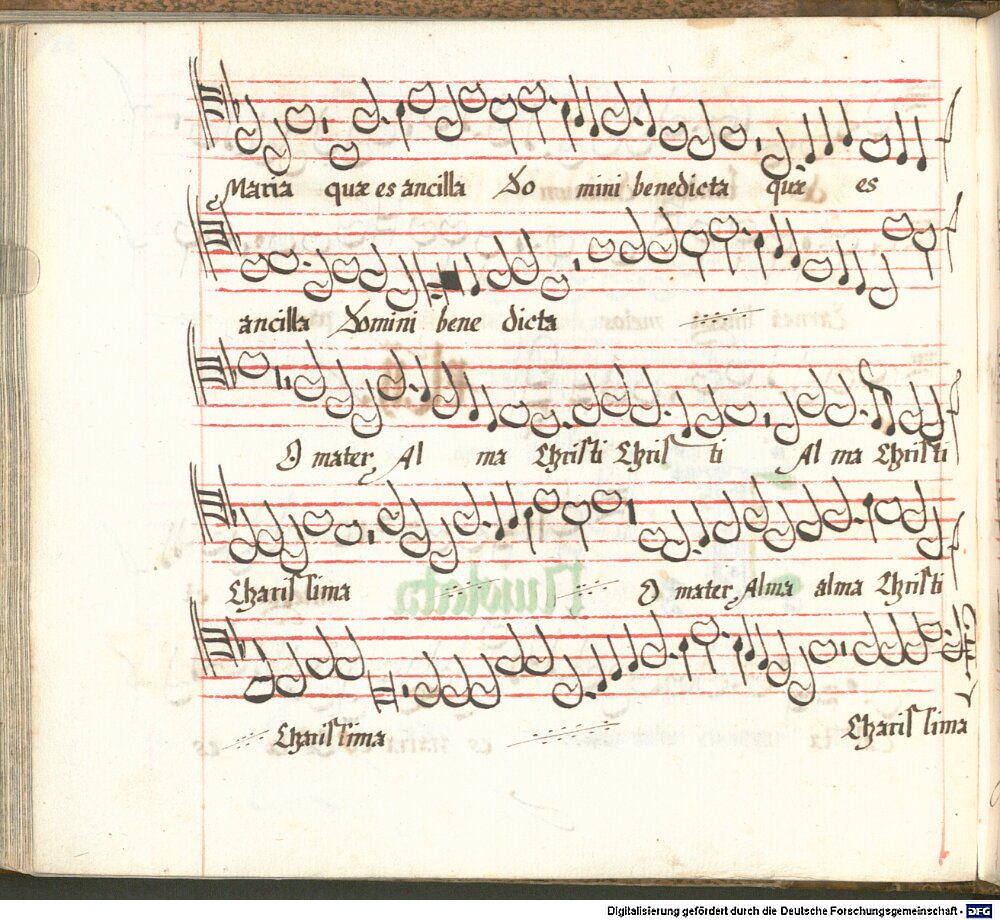 Maria quæ es ancilla Do mini benedicta quæ es
ancilla Domini bene dicta
O mater Al ma Christi Chris ti Al ma Christi
Charissima O mater Alma alma Christi
Charissima Charissima
Digitalisierung gefördert durch die Deutsche Forschungsgemeinschaft - DFG